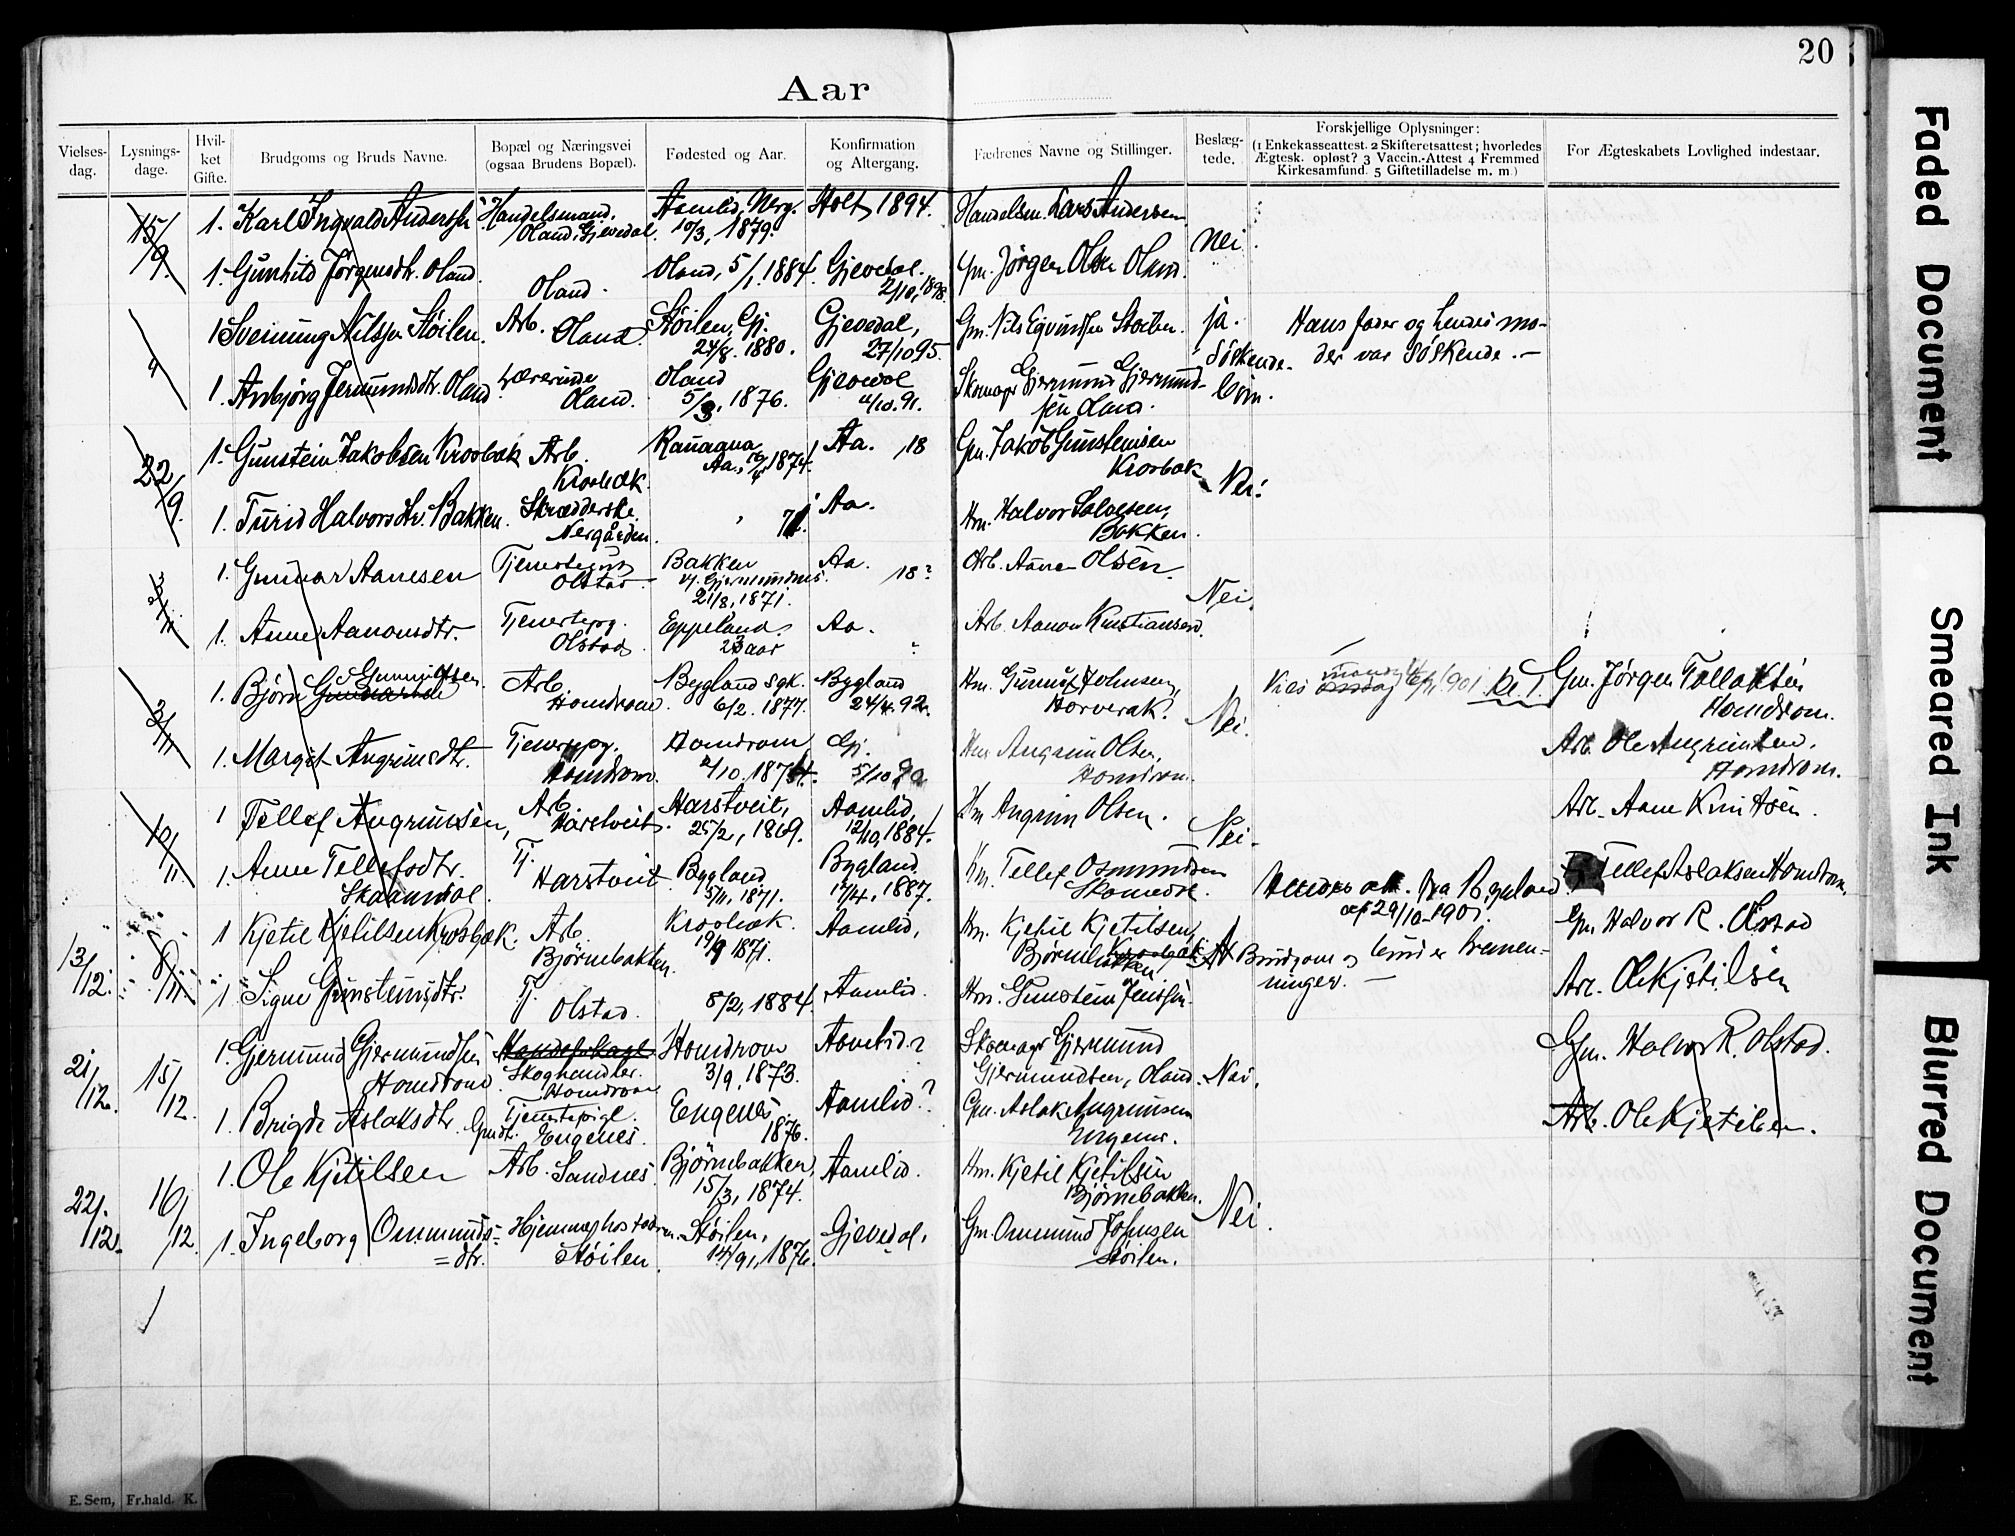 20
Aar
Vielses-dag.
Lysnings-dage.
Hvil-ket Gifte.
Brudgoms og Bruds Navne.
Bopæl og Næringsvei (ogsaa Brudens Bopæl).
Fødested og Aar.
Konfirmation og Altergang.
Fædrenes Navne og Stillinger.
Beslæg-tede.
Forskjellige Oplysninger:
(1 Enkekasseattest. 2 Skifteretsattest; hvorledes
Ægtesk. opløst? 3 Vaccin.-Attest 4 Fremmed
Kirkesamfund. 5 Giftetilladelse m. m.)
For Ægteskabets Lovlighed indestaar.
15/9. 1. Karl Ingvald Andersen Handelsmand. Oland, Gjevedal. Aamlid, Nerg. 10/3, 1879. Holt, 1894. Handelsm. Lars Andersen
Nei.
1. Gunhild Jørgensdtr. Oland. Oland. Oland, 5/1. 1884. Gjevedal. 2/10, 1898. Gm. Jørgen Olsen Oland.
1 Sveinung Nilsen Støilen. Arb. Oland. Støilen, Gj. 24/8. 1880. Gjevedal, 27/10 95. Gm. Nils Eivindsen Støilen. ja.
Søskende-
børn.
Hans fader og hendes mo-
der var søskende. —
1. Anbjørg Jermundsdtr. Oland Lærerinde Oland. Oland 5/3, 1876. Gjevedal 4/10. 91. Skomager Gjermund Gjermund-
sen Oland.
22/9. 1. Gunstein Jakobsen Krosbæk Arb. Krosbæk. Aa., 1874. Aa. 18 Gm. Jakob Gunsteinsen
Krosbæk
Nei.
1. Turid Halvorsdtr. Bakken. Skrædderske Nergården. 71. Aa. Hm. Halvor Salvesen,
Bakken.
1. Gunnar Aanesen Olstad. Bakken 21/8, 1871. Aa. 18? Arb. Aanen Olsen.
Nei.
1. Anne Aanonsdtr. Tjenestepg. Olstad. Eppeland. 23 aar Aa. Arb. Aanon Kristiansen.
3/11 1. Bjørn Gunnulfsen. Arb. Homdrom. Bygland sgk. 6/2. 1877. Bygland 24/4. 92. Hm. Gunnulf Johnsen,
Horverak.
Nei.
Gm. Jørgen Tollaksen
Homdrom.
1. Margit Angrimsdtr. Tjenestepg. Homdrom. Homdrom Gj. 5/10 Hm Angrim Olsen,
Homdrom.
Arb. Ole Angrimsen,
Homdrom.
10/11 1 Tellef Angrimsen, Arb. Harstveit. Harstveit, 25/2, 1869. Aamlid, 12/10, 1884. Hm Angrim Olsen.
Nei.
1. Anne Tellefsdtr. Tj. Harstveit Bygland 5/11, 1871. Bygland 17/4, 1887. Hm. Tellef Osmundsen
fra Bygland
af 29/10-1901.
Tellef Aslaksen Homdrom.
13/12. 1 Kjetil Kjetilsen Krosbæk. Arb. Bjørnebakken. Krosbæk. 19/9 1871. Aamlid, Hm. Kjetil Kjetilsen,
Brudgom og brud er fremen-
ninger. —
Gm Halvor R. Olstad
1 Signe Gunsteinsdtr. Tj. Olstad. 8/2, 1884. Aamlid. Hm. Gunstein Jensen.
Arb. Ole Kjetilsen
21/12. 15/12. 1. Gjermund Gjermundsen
Homdrom. Skoghandler. Homdrom Homdrom 3/9, 1873. Aamlid.? Skomager Gjermund
Gjermundsen, Oland. Nei.
Gm. Halvor R. Olstad.
1. Brigde Aslaksdtr. Tjenestepige. Engenes. Engenes 1876. Aamlid? Gm. Aslak Angrimsen
Engenes.
Arb. Ole Kjetilsen.
22/12. 16/12. 1. Ole Kjetilsen Arb. Sandnes. Bjørnebakken, 15/3, 1874. Aamlid. Hm. Kjetil Kjetilsen
Bjørnebakken.
Nei.
1. Ingeborg Ommunds-
=dtr. Hjemme hos Støilen. Støilen, 1876. Gjevedal. Gm. Ommund Johnsen
Støilen.
E. Sem, Fr.hald. K.
Faded Document
Smeared Ink
Blurred Document